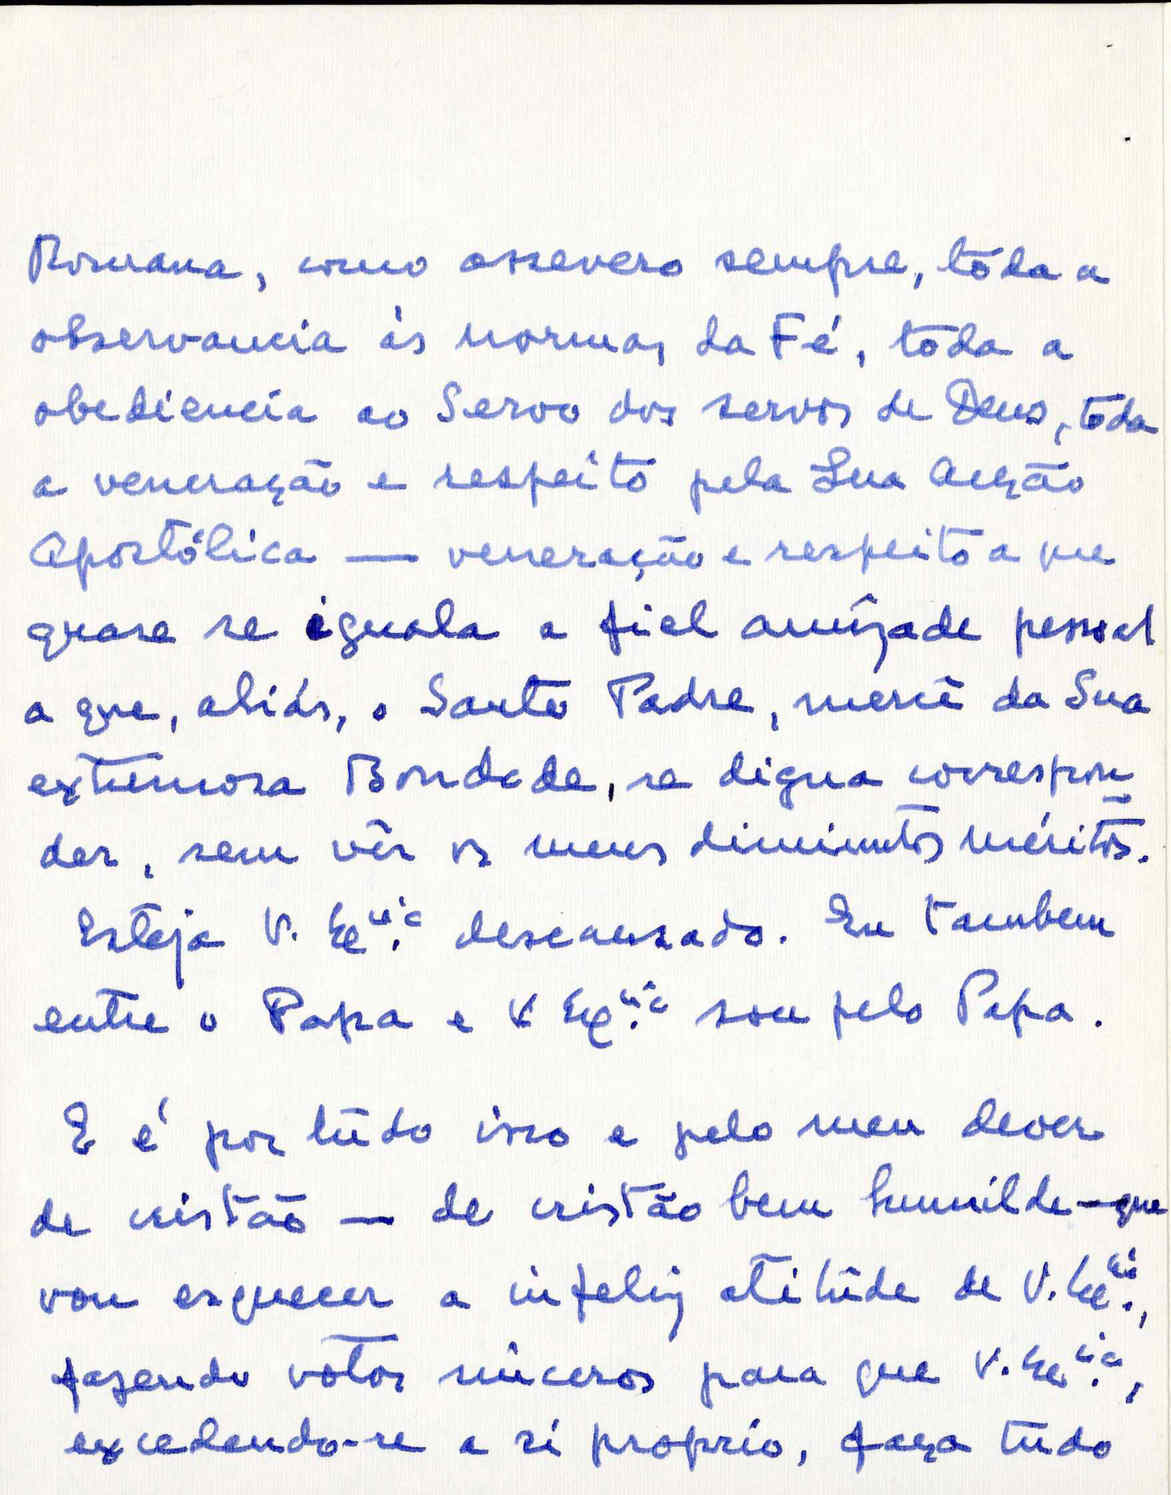 Romana, como assevero sempre, tôda a
observancia ás normas da Fé, tôda a
obediencia ao Servo dos servos de Deus, tôda
a veneração e respeito pela Sua Acção
Apostólica — veneração e respeito a que
quase se iguala a fiel amizade pessoal
a que, aliás, o Santo Padre, mercê da Sua
extremosa Bondade, se digna correspon
der, sem vêr os meus diminutos méritos.
Esteja V. Ex.cia descansado. Eu tambem
entre o Papa e V. Ex.cia sou pelo Papa.
E é por tudo isso e pelo meu dever
de cristão — de cristão bem humilde — que
vou esquecer a infeliz atitude de V. Ex.cia,
fazendo votos sinceros para que V. Ex.cia,
excedendo-se a si proprio, faça tudo